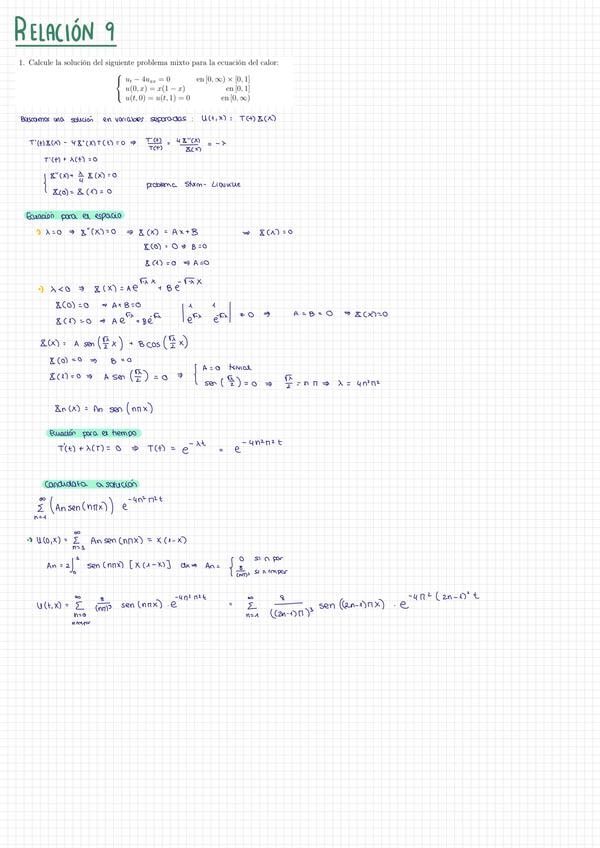 RELACIÓN 9
1. Calcule la solución del siguiente problema mixto para la ecuación del calor:
{ u_t − 4u_xx = 0 en ]0, ∞) × [0, 1]
u(0, x) = x(1 − x) en [0, 1]
u(t, 0) = u(t, 1) = 0 en [0, ∞)
Buscamos una solución en variables separadas : U(t,x) = T(t) X(x)
T'(t) X(x) − 4 X''(x) T(t) = 0 ⇒ T'(t)/T(t) = 4X''(x)/X(x) = −λ
T'(t) + λ(t) = 0
{ X''(x) + λ/4 X(x) = 0
X(0) = X(1) = 0
problema Sturm - Liouville
Ecuación para el espacio
·) λ=0 ⇒ X''(x) = 0 ⇒ X(x) = Ax + B ⇒ X(x) = 0
X(0) = 0 ⇒ B=0
X(1) = 0 ⇒ A=0
·) λ<0 ⇒ X(x) = A e^{√-λ x} + B e^{-√-λ x}
X(0) = 0 ⇒ A+B = 0
X(1) = 0 ⇒ A e^{√-λ} + B e^{-√-λ}
| 1 1
e^{√-λ} e^{-√-λ} | ≠ 0 ⇒ A = B = 0 ⇒ X(x)=0
X(x) = A sen (√λ/2 x) + B cos (√λ/2 x)
X(0) = 0 ⇒ B = 0
X(1) = 0 ⇒ A sen (√λ/2) = 0 ⇒ { A = 0
sen (√λ/2) = 0 ⇒ √λ/2 = nπ ⇒ λ = 4n²π²
Xn(x) = An sen (nπx)
Ecuación para el tiempo
T'(t) + λ(T) = 0 ⇒ T(t) = e^{-λt} = e^{-4n²π²t}
Candidata a solución
∑_{n=1}^∞ (An sen(nπx)) e^{-4n²π²t}
→ U(0,x) = ∑_{n=1}^∞ An sen (nπx) = x(1−x)
An = 2∫_0^1 sen (nπx) [x(1−x)] dx ⇒ An = { 0 si n par
8/(nπ)³ si n impar
U(t,x) = ∑_{n=0}^∞ 8/(nπ)³ sen (nπx) · e^{-4n²π²t} = ∑_{n=1}^∞ 8/((2n-1)π)³ sen ((2n-1)πx) · e^{-4π²(2n-1)²t}
n impar